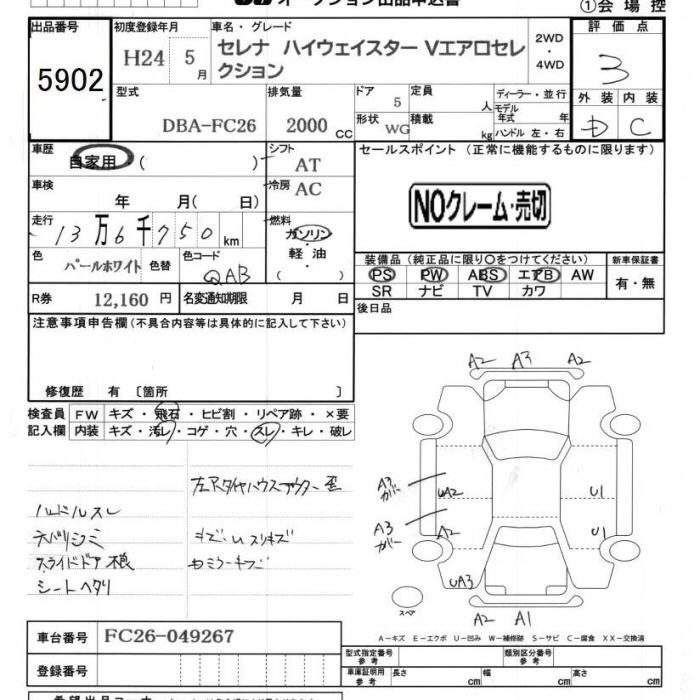 ①会場控
出品番号
5902
初度登録年月
H24 5月
車名・グレード
セレナ ハイウェイスター Vエアロセレクション
2WD
・
4WD
評価点
3
外装 内装
D C
型式
DBA-FC26
排気量
2000 cc
ドア
5
形状 WG
定員
人
積載
kg
ディーラー・並行
モデル年式 年
ハンドル 左・右
車歴
自家用 ( )
シフト
AT
車検
年 月( 日)
冷房 AC
走行
13万6千750km
燃料
ガソリン
・
軽油
( )
色
パールホワイト
色替
色コード
QAB
R券 12,160 円
名変通知期限 月 日
セールスポイント (正常に機能するものに限ります)
NOクレーム・売切
装備品 (純正品に限り○をつけてください)
PS PW ABS エアB AW
SR ナビ TV カワ
新車保証書
有・無
後日品
注意事項申告欄(不具合内容等は具体的に記入して下さい)
修復歴 有 〔箇所 〕
検査員記入欄
FW キズ・飛石・ヒビ割・リペア跡・×要
内装 キズ・汚レ・コゲ・穴・スレ・キレ・破レ
ハンドルスレ
シートヘタリ
A2 A3 A2
A3
カバー
UA2
U1
A3
カバー
A2
U1
UA3
スペア
A2 A1
A－キズ E－エクボ U－凹み W－補修跡 S－サビ C－腐食 XX－交換済
車台番号 FC26-049267
登録番号
型式指定番号
参考
類別区分番号
参考
車庫証明用
参考
長さ cm
幅 cm
高さ cm